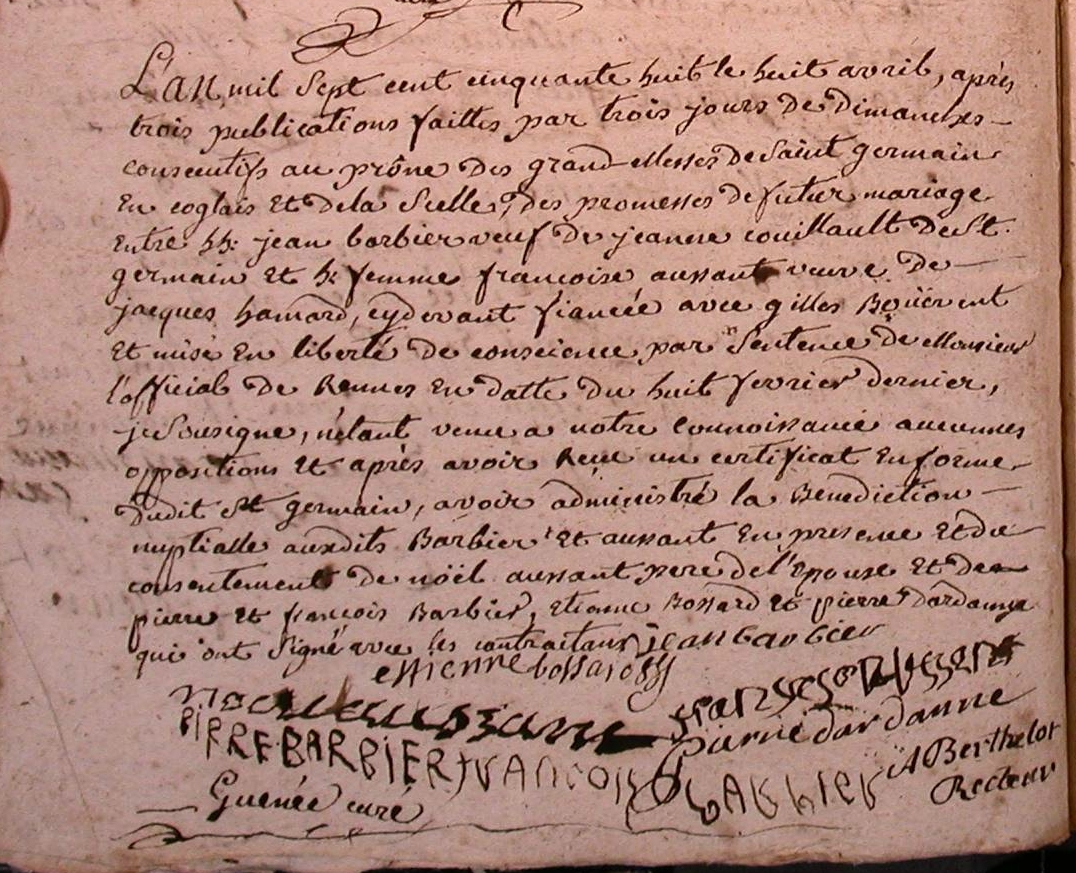 L'an mil sept cent cinquante huit le huit avril, après
trois publications faittes par trois jours de dimanches
consecutifs au prône des grand Messes de Saint germain
En coglais Et de la Selle, des promesses de futur mariage
Entre hh: jean barbier veuf de jeanne couillault de St.
germain et h: femme françoise aussant veuve de
jacques hamard, cydevant fiancée avec gilles Boüvent
Et mise En liberté de conscience par Sentence de Monsieur
l'official de Rennes En datte du huit fevrier dernier,
je Sousigne, n'etant venu a notre connoissance aucunnes
oppositions Et après avoir Reçu un certificat En forme
Dudit St germain, avoir administré la Benediction
nuptialle auxdits Barbier Et aussant En presence Et du
consentement de noël aussant pere de l'Epouse Et de
pierre et françois Barbier, Etienne Bossard Et pierre Dardanne
qui ont Signé avec les contractans jean barbier
ettienne bossard
fransoise aussant
pierre dardanne
PIRRE BARBIER FRANCOIS BARBIER
A Berthelot
Recteur
Guenée curé